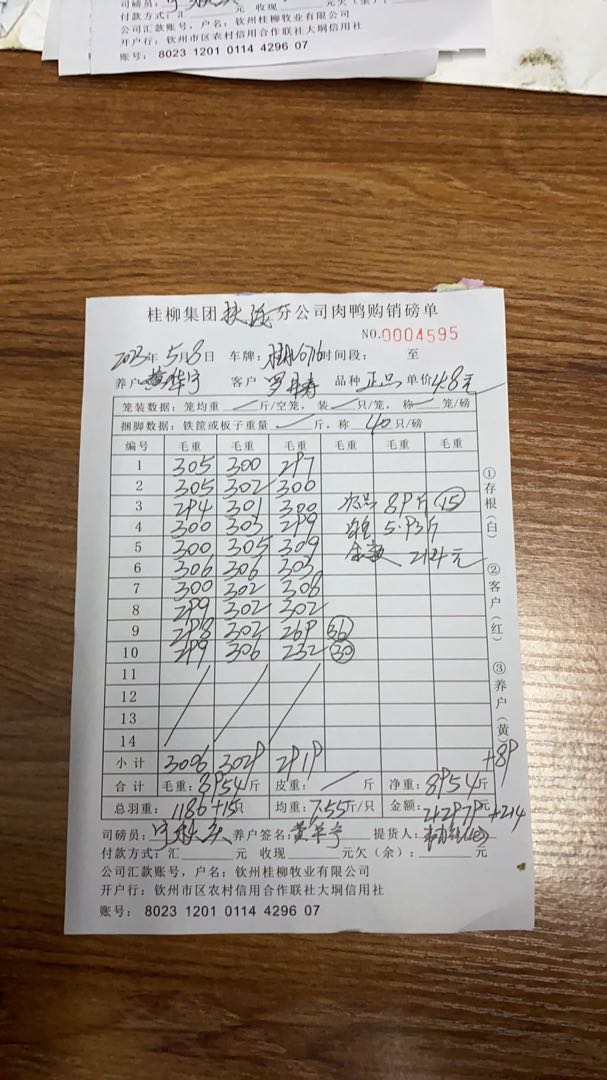 付款方式：汇 元 收现 元欠（余）
公司汇款账号，户名：钦州桂柳牧业有限公司
开户行：钦州市区农村信用合作联社大垌信用社
账号：8023 1201 0114 4296 07
桂柳集团扶绥分公司肉鸭购销磅单
NO.0004595
2023年5月8日 车牌： 时间段： 至
养户黄华宁 客户 品种 正品 单价4.8元
笼装数据：笼均重 斤/空笼，装 只/笼，称 笼/磅
捆脚数据：铁筐或板子重量 斤，称 40 只/磅
编号 毛重 毛重 毛重 毛重 毛重 毛重
1 305 300 297
2 305 302 300
3 294 301 300 次品 89斤 15
4 300 303 299 均重 5.93斤
5 300 305 309 金额 214元
6 306 306 303
7 300 302 308
8 299 302 302
9 298 302 269 36
10 299 306 232 30
11
12
13
14
小计 3006 3029 2919
+89
合计 毛重：8954斤 皮重： 斤 净重：8954斤
总羽重：1186+15只 均重：7.55斤/只 金额：42979元+214
司磅员： 养户签名：黄华宁 提货人：
付款方式：汇 元 收现 元欠（余）： 元
公司汇款账号，户名：钦州桂柳牧业有限公司
开户行：钦州市区农村信用合作联社大垌信用社
账号：8023 1201 0114 4296 07
①存根（白）
②客户（红）
③养户（黄）